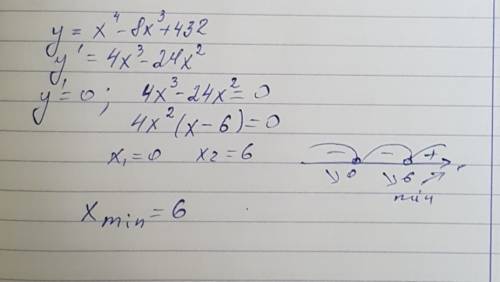 y = x⁴ - 8x³ + 432
y' = 4x³ - 24x²
y' = 0 ; 4x³ - 24x² = 0
4x²(x - 6) = 0
x₁ = 0 x₂ = 6
- - +
0 6
min
x min = 6